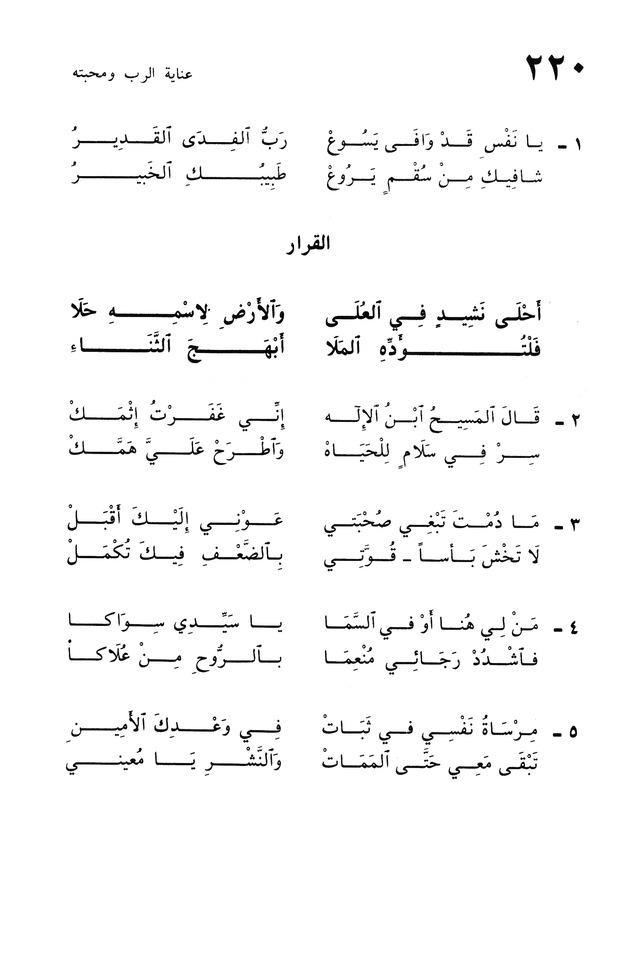 ٢٢٠
عناية الرب ومحبته
١ ـ يا نَفْسِ قَدْ وَافَى يَسُوعْ رَبُّ ٱلفِدَى ٱلقَدِيرُ
شافِيكِ مِنْ سُقْمٍ يَرُوعْ طَبِيبُكِ ٱلخَبيرُ
القرار
أَحْلَى نَشِيدٍ فِي ٱلعُلَى وَٱلأَرْضِ لِاسْمِهِ حَلَا
فَلْتُؤَدِّهِ ٱلمَلَا أَبْهَجَ ٱلثَّنَاءِ
٢ ـ قَالَ ٱلمَسِيحُ ٱبْنُ ٱلإِلَه إِنِّي غَفَرْتُ إِثْمَكْ
سِرْ فِي سَلَامٍ لِلْحَيَاهْ وَٱطْرَحْ عَلَيَّ هَمَّكْ
٣ ـ مَا دُمْتَ تَبْغِي صُحْبَتي عَوْنِي إِلَيْكَ أَقْبَلْ
لَا تَخْشَ بَأْساً ـ قُوَّتِي بِٱلضَّعْفِ فِيكَ تُكْمَلْ
٤ ـ مَنْ لِي هُنا أَوْ في ٱلسَّمَا يا سَيِّدِي سِوَاكا
فٱشْدُدْ رَجَائِي مُنْعِمَا بٱلرُّوحِ مِنْ عُلَاكا
٥ ـ مِرْسَاةُ نَفْسِي في ثَبَاتْ فِي وَعْدِكَ ٱلأَمِينِ
تَبْقَى مَعِي حَتَّى ٱلمَمَاتْ وَٱلنَّشْرِ يَا مُعيني